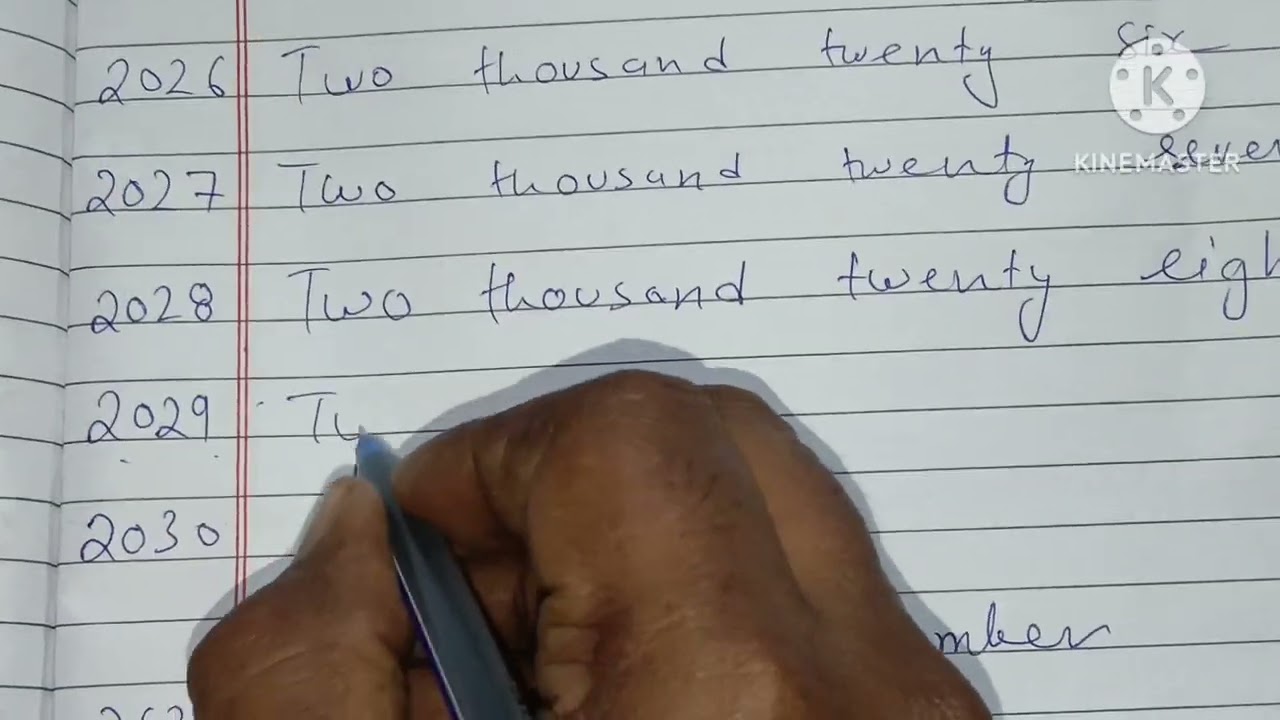 2026 Two thousand twenty six
2027 Two thousand twenty seven
2028 Two thousand twenty eigh
2029 Tw
2030
mber
K
KINEMASTER